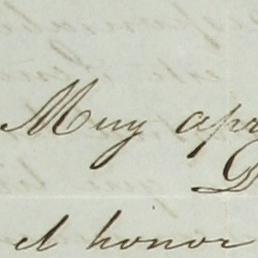 Muy apr
D
el honor